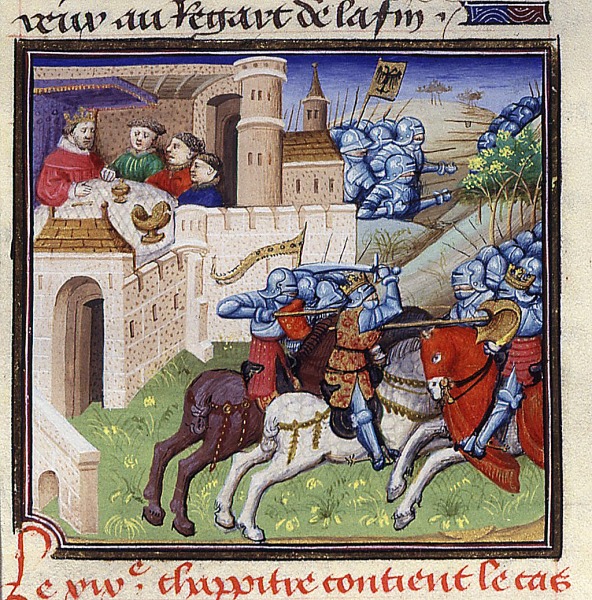 veuv au Regart de la fin
Le xvıȷe chappitre contient le cas